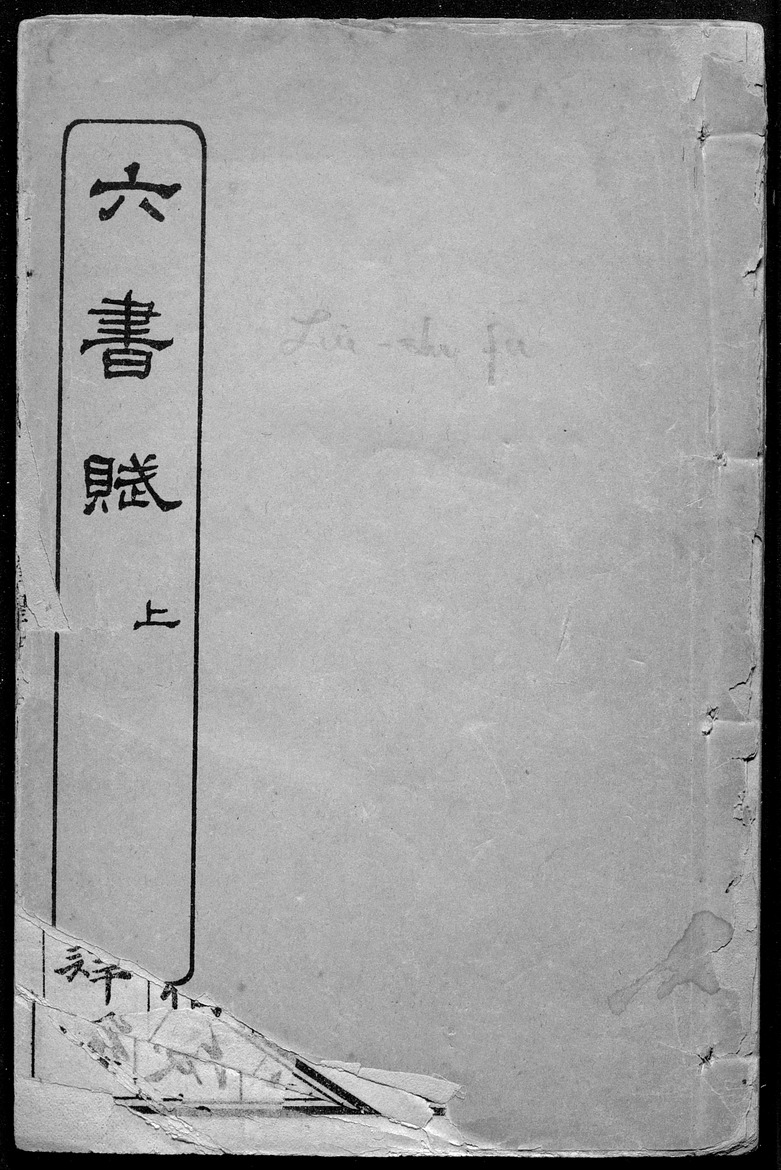 六書賦
上
Liu-shu fu